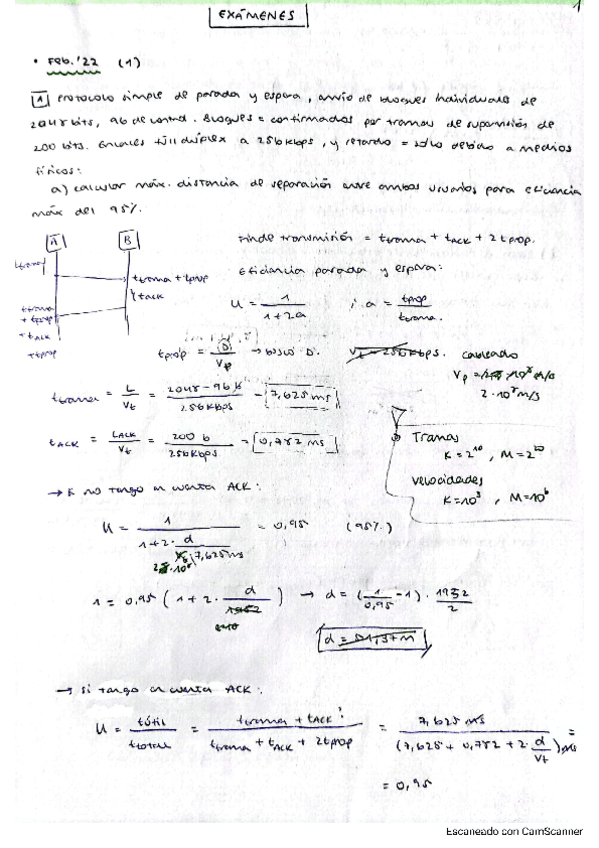 1
EXÁMENES
• Feb.'22 (1)
1 Protocolo simple de parada y espera, envío de bloques individuales de
2048 bits, 96 de control. Bloques = confirmados por tramas de supervisión de
200 bits. Enlaces full duplex a 256 Kbps, y retardo = sólo debido a medios
físicos:
a) calcular máx. distancia de separación entre ambos usuarios para eficiencia
máx del 95%.
A B
tiempo de transmisión = ttrama + tACK + 2tprop.
ttrama
ttrama + tprop
tACK
ttrama
+ tprop
+ tACK
+ tprop
Eficiencia parada y espera:
U = 1 / 1+2a ; a = tprop / ttrama.
tprop = D / Vp → busco D. Vt = 256 Kbps. cableado
Vp = 2·10⁸ m/s
ttrama = L / Vt = 2048 - 96 b / 256 Kbps = 7,625 ms
tACK = LACK / Vt = 200 b / 256 Kbps = 0,782 ms
Tramas
K = 2¹⁰, M = 2²⁰
Velocidades
K = 10³, M = 10⁶
→ Si no tengo en cuenta ACK:
U = 1 / 1+2· d / 7,625 ms = 0,95 (95%)
2·10⁸
1 = 0,95 (1 + 2 · d / 1952) → d = (1 / 0,95 - 1) · 1952 / 2
d = 51,37 m
→ Si tengo en cuenta ACK:
U = tútil / ttotal = ttrama + tACK? / ttrama + tACK + 2tprop = 7,625 ms / (7,625 + 0,782 + 2· d / Vt) ms =
= 0,95
Escaneado con CamScanner